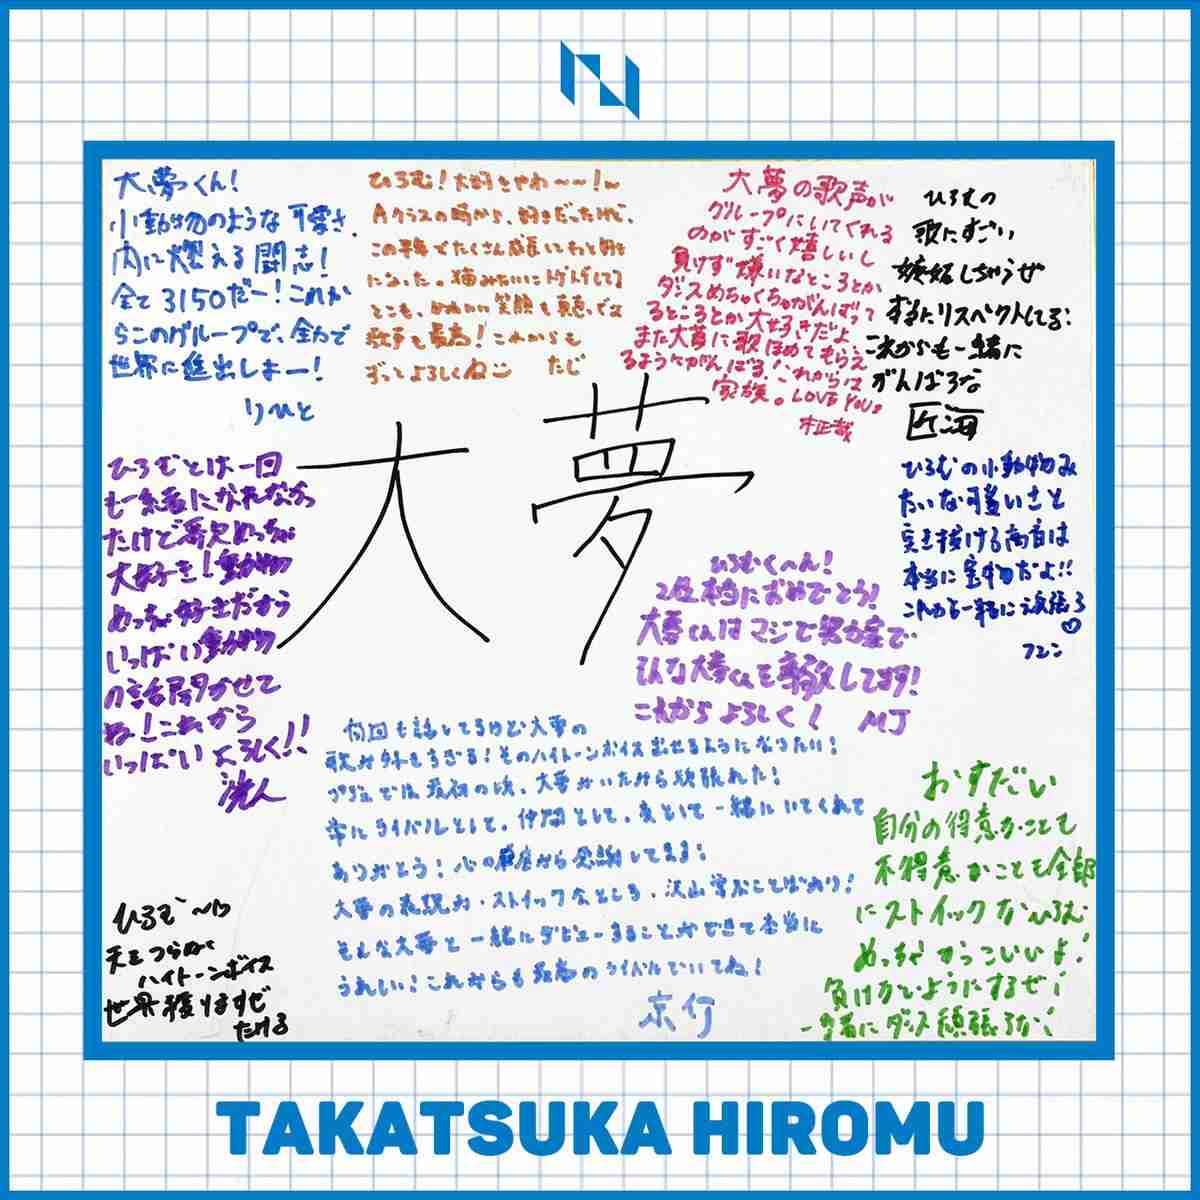 大夢くん!
小動物のような可愛さ、
内に燃える闘志!
全て3150だー!これか
らこのグループで、全力で
世界に進出しまー!
りひと
ひろむ!大好きやわ〜〜!
Aクラスの時から、好きだったけど、
この準備でたくさん
になった。猫みたいに
とこも、かわいい笑顔も真顔
歌声も最高!これからも
ずっとよろしくね
たじ
大夢の歌声が
グループにいてくれる
のがすごく嬉しいし
負けず嫌いなところとか
ダンスめちゃくちゃがんばって
るところとか大好きだよ
また大夢に歌ほめてもらえ
るようにがんばる!これからは
家族。LOVE YOU。
柾哉
ひろむの
歌にすごい
嫉妬しちゃうぜ
するにリスペクトしてる!
これからも一緒に
がんばろな
匠海
大夢
ひろむとは一回
も一緒になれなかっ
たけど歌めっちゃ
大好き!動物
めっちゃ好きだから
いっぱい動物
の話聞かせて
ね!これから
いっぱいよろしく!!
洸人
ひろむの小動物み
たいな可愛いさと
突き抜ける高音は
本当に宝物だよ!!
これからも一緒に頑張ろ♡
フミニ
ひろむく〜ん!
2位本当におめでとう!
大夢くんはマジで努力家で
そんな大夢くんを尊敬してます!
これからよろしく!
MJ
何回も話してるけど大夢の
歌が外もすぎる!そのハイトーンボイス出せるようになりたい!
プデュでは最初の頃、大夢がいたから頑張れた!
常にライバルとして、仲間として、友として一緒にいてくれて
ありがとう!心の底から感謝してます!
大夢の表現力・ストイックなところ・沢山学ぶことばかり!
そんな大夢と一緒にデビューすることができて本当に
うれしい!これからも最高のライバルでいてね!
京介
おすだい
自分の得意なことも
不得意なことも全部
にストイックなひろむ
めっちゃかっこいいよ!
負けないようにするぜ!
一緒にダンス頑張ろな!
ひろむ〜♡
天をつらぬく
ハイトーンボイス
世界獲りますぜ
たける
TAKATSUKA HIROMU